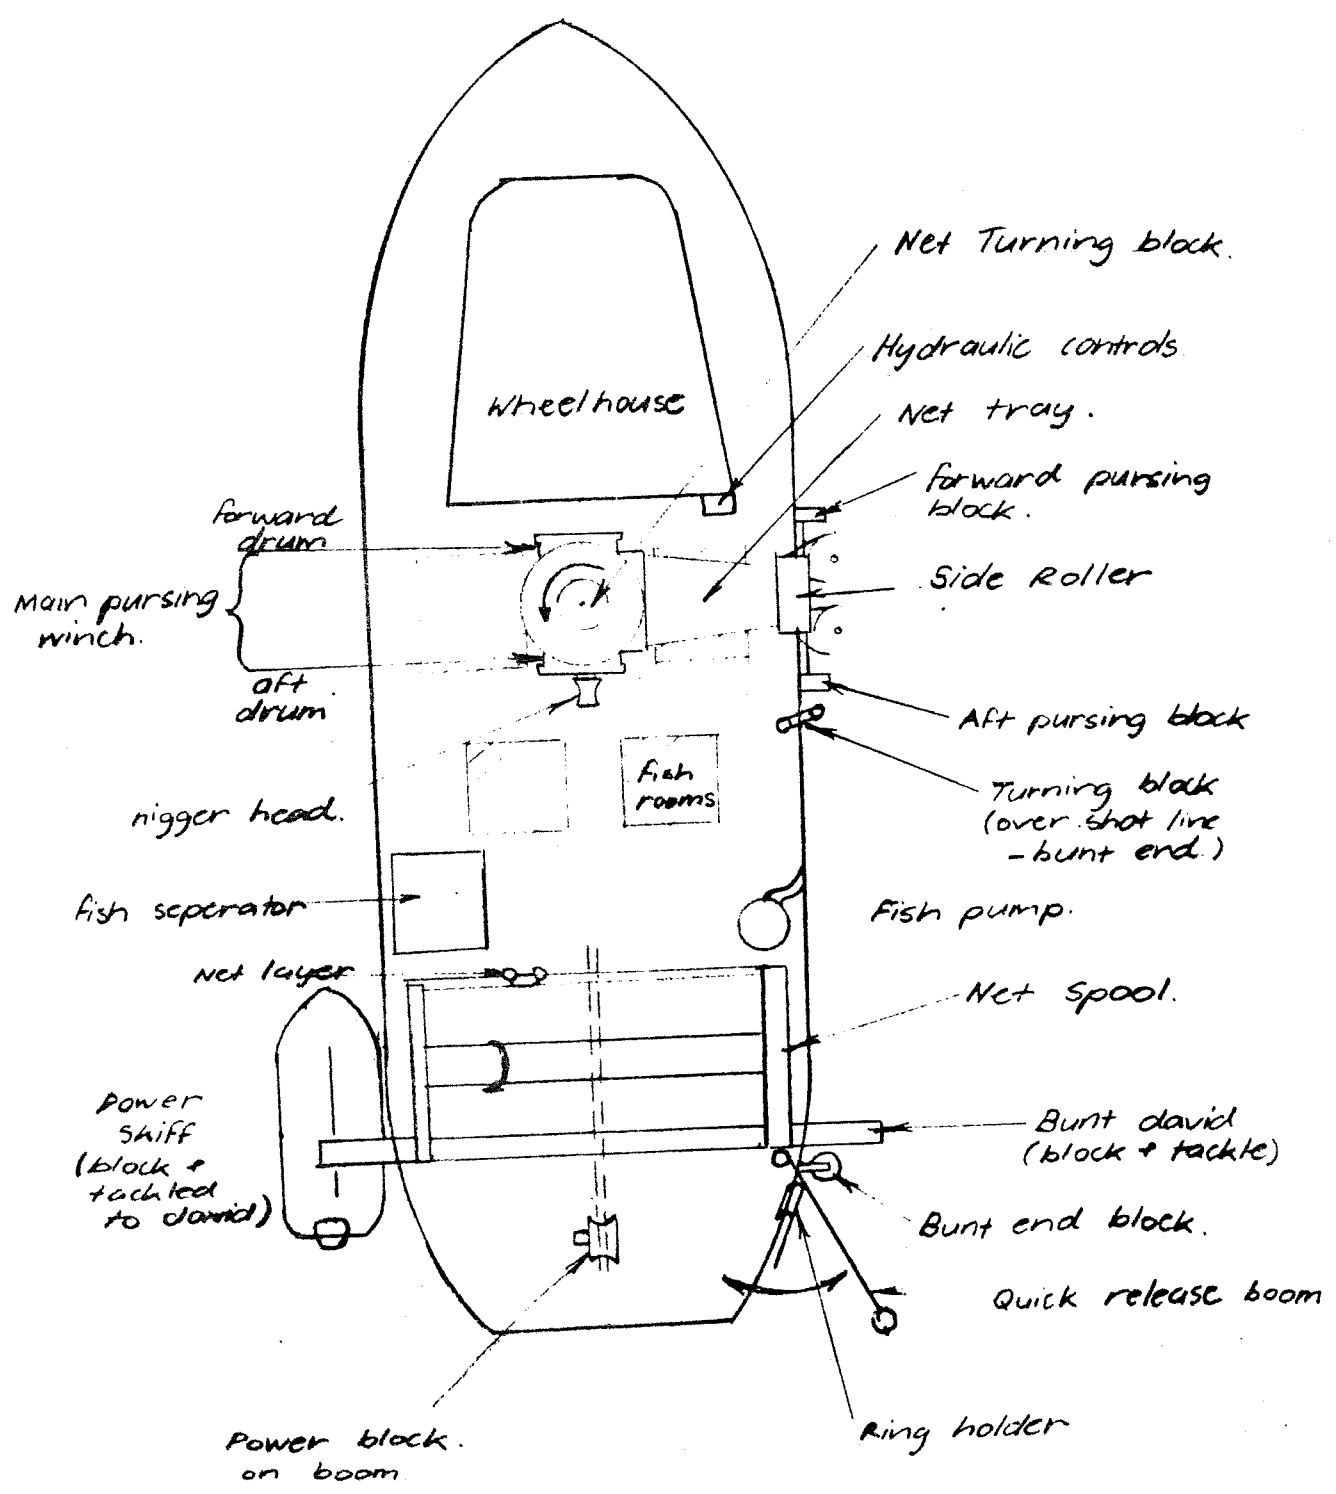 Net Turning block.
Hydraulic controls
Wheelhouse
Net tray.
forward pursing
block.
forward
drum
Side Roller
Main pursing
winch.
aft
drum
Aft pursing block
fish
rooms
Turning block
(over shot line
- bunt end.)
nigger head.
fish seperator
Fish pump.
Net layer
Net Spool.
Power
Skiff
(block +
tackled
to david)
Bunt david
(block + tackle)
Bunt end block.
Quick release boom
Ring holder
Power block.
on boom